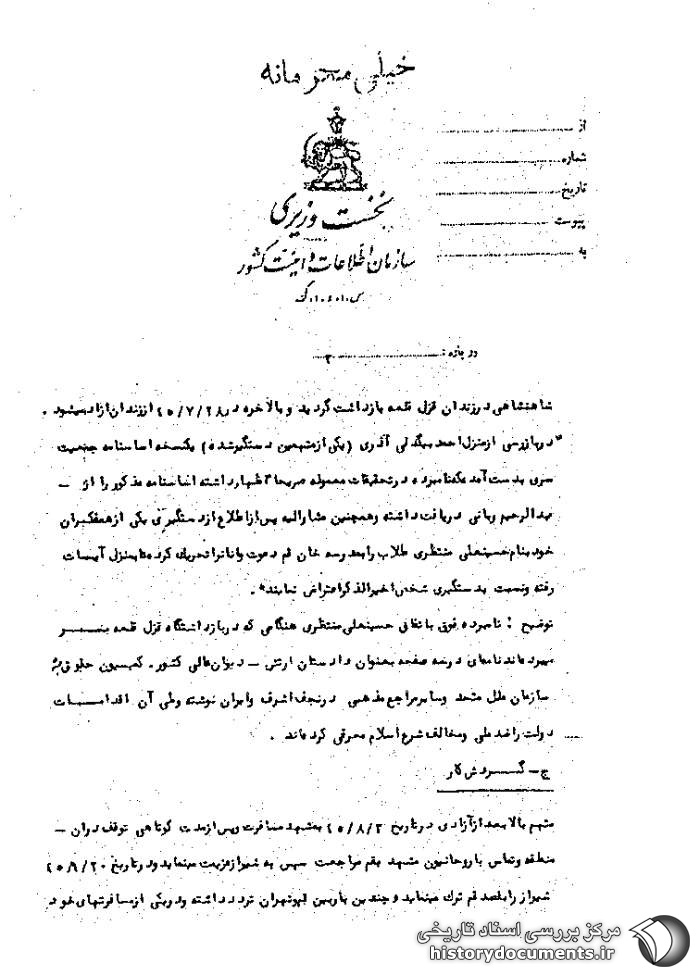 خیلی محرمانه
از
شماره
تاریخ
پیوست
به
نخست وزیری
سازمان اطلاعات و امنیت کشور
در باره :
شاهنشاهی در زندان قزل قلعه بازداشت گردید و بالاخره در ۴۵/۷/۲۸ از زندان آزاد میشود .
در بازرسی از منزل احمد بیگدلی آذری (یکی از متهمین دستگیر شده) یکنسخه اساسنامه جمعیت
سری بدست آمده که نامبرده در تحقیقات معموله صریحا اظهار داشته اساسنامه مذکور را از –
عبدالرحیم ربانی دریافت داشته وهمچنین مشارالیه پس از اطلاع از دستگیری یکی از همفکران
خود بنام حسینعلی منتظری طلاب را بمدرسه خان قم دعوت وآنانرا تحریک کرده تا بمنزل آیات
رفته ونسبت بدستگیری شخص اخیرالذکر اعتراض نمایند" .
توضیح : نامبرده فوق باتفاق حسینعلی منتظری هنگامی که در بازداشتگاه قزل قلعه بسر
میبرده اند نامه‌ای در سه صفحه بعنوان دادستان ارتش – دیوان عالی کشور . کمیسیون حقوق بشر
سازمان ملل متحد وسایر مراجع مذهبی در نجف اشرف وایران نوشته وطی آن اقدامات
دولت را ضد ملی ومخالف شرع اسلام معرفی کرده‌اند .
ج – گردش کار
متهم بالا بعد از آزادی در تاریخ ۴۵/۸/۲ بمشهد مسافرت وپس از مدت کوتاهی توقف در آن –
منطقه وتماس با روحانیون مشهد بقم مراجعت سپس به شیراز عزیمت مینماید ودر تاریخ ۴۵/۹/۲۰
شیراز را بقصد قم ترک مینماید و چندین بار بین قم وتهران تردد داشته ودر یکی از مسافرتهای خود
مرکز بررسی اسناد تاریخی
historydocuments.ir